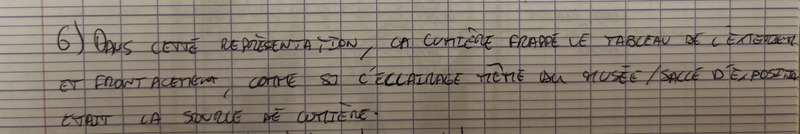 6) Dans cette représentation, la lumière frappe le tableau de l'extérieur
et frontalement, comme si l'éclairage même du musée/salle d'exposition
était la source de lumière.